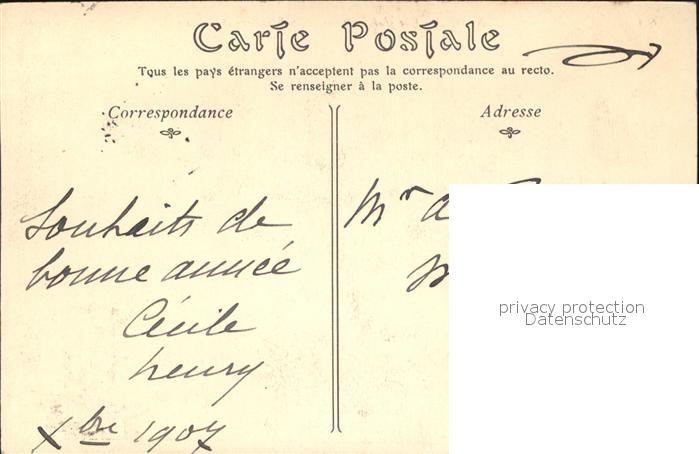 Carte Postale
Tous les pays étrangers n'acceptent pas la correspondance au recto.
Se renseigner à la poste.
Correspondance
Adresse
Souhaits de
bonne année
Cécile
Henry
Xbre 1907
Mr
privacy protection
Datenschutz